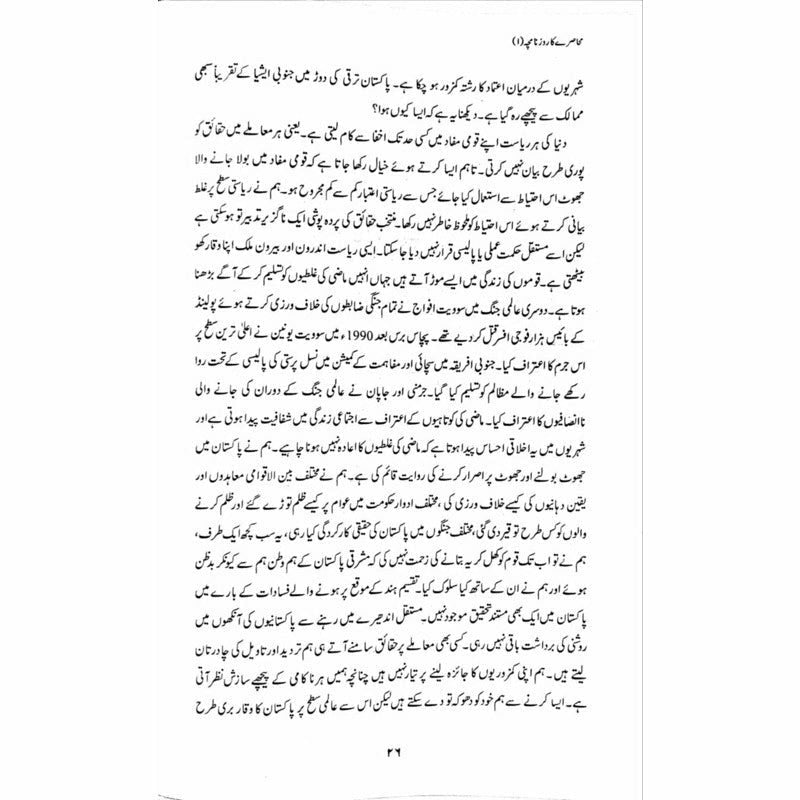 محاصرے کا روزنامچہ (۱)
شہریوں کے درمیان اعتماد کا رشتہ کمزور ہو چکا ہے۔ پاکستان ترقی کی دوڑ میں جنوبی ایشیا کے تقریباً سبھی
ممالک سے پیچھے رہ گیا ہے۔ دیکھنا یہ ہے کہ ایسا کیوں ہوا؟
دنیا کی ہر ریاست اپنے قومی مفاد میں کسی حد تک اخفا سے کام لیتی ہے۔ یعنی ہر معاملے میں حقائق کو
پوری طرح بیان نہیں کرتی۔ تاہم ایسا کرتے ہوئے خیال رکھا جاتا ہے کہ قومی مفاد میں بولا جانے والا
جھوٹ اس احتیاط سے استعمال کیا جائے جس سے ریاستی اعتبار کم سے کم مجروح ہو۔ ہم نے ریاستی سطح پر غلط
بیانی کرتے ہوئے اس احتیاط کو ملحوظ خاطر نہیں رکھا۔ منتخب حقائق کی پردہ پوشی ایک ناگزیر تدبیر تو ہو سکتی ہے
لیکن اسے مستقل حکمت عملی یا پالیسی قرار نہیں دیا جا سکتا۔ ایسی ریاست اندرون اور بیرون ملک اپنا وقار کھو
بیٹھتی ہے۔ قوموں کی زندگی میں ایسے موڑ آتے ہیں جہاں انہیں ماضی کی غلطیوں کو تسلیم کر کے آگے بڑھنا
ہوتا ہے۔ دوسری عالمی جنگ میں سوویت افواج نے تمام جنگی ضابطوں کی خلاف ورزی کرتے ہوئے پولینڈ
کے بائیس ہزار فوجی افسر قتل کر دیے تھے۔ پچاس برس بعد 1990ء میں سوویت یونین نے اعلیٰ ترین سطح پر
اس جرم کا اعتراف کیا۔ جنوبی افریقہ میں سچائی اور مفاہمت کے کمیشن میں نسل پرستی کی پالیسی کے تحت روا
رکھے جانے والے مظالم کو تسلیم کیا گیا۔ جرمنی اور جاپان نے عالمی جنگ کے دوران کی جانے والی
ناانصافیوں کا اعتراف کیا۔ ماضی کی کوتاہیوں کے اعتراف سے اجتماعی زندگی میں شفافیت پیدا ہوتی ہے اور
شہریوں میں یہ اخلاقی احساس پیدا ہوتا ہے کہ ماضی کی غلطیوں کا اعادہ نہیں ہونا چاہیے۔ ہم نے پاکستان میں
جھوٹ بولنے اور جھوٹ پر اصرار کرنے کی روایت قائم کی ہے۔ ہم نے مختلف بین الاقوامی معاہدوں اور
یقین دہانیوں کی کیسے خلاف ورزی کی، مختلف ادوار حکومت میں عوام پر کیسے ظلم توڑے گئے اور ظلم کرنے
والوں کو کس طرح توقیر دی گئی، مختلف جنگوں میں پاکستان کی حقیقی کارکردگی کیا رہی، یہ سب کچھ ایک طرف،
ہم نے تو اب تک قوم کو کھل کر یہ بتانے کی زحمت نہیں کی کہ مشرقی پاکستان کے ہم وطن ہم سے کیونکر بدظن
ہوئے اور ہم نے ان کے ساتھ کیا سلوک کیا۔ تقسیم ہند کے موقع پر ہونے والے فسادات کے بارے میں
پاکستان میں ایک بھی مستند تحقیق موجود نہیں۔ مستقل اندھیرے میں رہنے سے پاکستانیوں کی آنکھوں میں
روشنی کی برداشت باقی نہیں رہی۔ کسی بھی معاملے پر حقائق سامنے آتے ہی ہم تردید اور تاویل کی چادر تان
لیتے ہیں۔ ہم اپنی کمزوریوں کا جائزہ لینے پر تیار نہیں ہیں چنانچہ ہمیں ہر ناکامی کے پیچھے سازش نظر آتی
ہے۔ ایسا کرنے سے ہم خود کو دھوکہ تو دے سکتے ہیں لیکن اس سے عالمی سطح پر پاکستان کا وقار بری طرح
۲۶